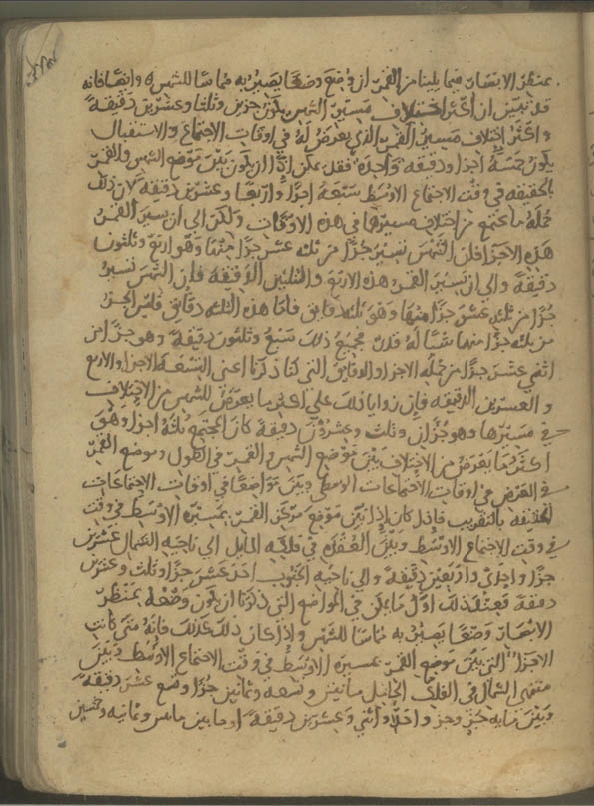 بمنظر الابصار فيما يلينا من القمر ان وضع وضعا يصير به مماسا للشمس وايضا فانه
قد تبين ان اكثر اختلاف مسير الشمس يكون جزين وثلثا وعشرين دقيقة
واكثر اختلاف مسير القمر الذي يعرض له في اوقات الاجتماع والاستقبال
يكون خمسة اجزا ودقيقه واحده فقد يمكن اذا ان يكون بين موضع الشمس والقمر
بالحقيقه في وقت الاجتماع الاوسط سبعة اجزا واربعا وعشرين دقيقه لان ذلك
جملة ما يجتمع من اختلاف مسيرها في هذه الاوقات ولكن الى ان يسير القمر
هذه الاجزا فان الشمس تسير جزا من ثلثه عشر جزا منها وهو اربع وثلثون
دقيقة والى ان يسير القمر هذه الاربع والثلثين الدقيقه فان الشمس تسير
جزا من ثلثه عشر جزا منها وهي ثلثه دقايق فاما هذه الثلثه دقايق فليس الجز
من ثلثه جزا منها شيا له قدر مجتمع ذلك سبع وثلثون دقيقة وهو جزا من
اثني عشر جزا من جمله الاجزا والدقايق التي كنا ذكرنا اعني السبعه الاجزا والاربع
والعشرين الدقيقه فان زدنا ذلك على اكثر ما يعرض للشمس من الاختلاف
في مسيرها وهو جزان وثلث وعشرون دقيقة كان المجتمع ثلثة اجزا وهو
اكثر ما يعرض من الاختلاف بين موضع الشمس والقمر في الطول وموضع القمر
في العرض في اوقات الاجتماعات الوسطى وبين مواضعها في اوقات الاجتماعات
الحقيقه بالتقريب فاذا كان اذا بين موضع مركز القمر بمسيره الاوسط في وقت
في وقت الاجتماع الاوسط وبين العقده في فلكه المايل الى ناحيه الشمال عشرين
جزا واحدى واربعين دقيقة والى ناحيه الجنوب احد عشر جزا وثلث وعشرين
دقيقة فعند ذلك اول ما يمكن في المواضع التي ذكرنا ان يكون وضعه بمنظر
الابصار وضعا يصير به مماسا للشمس واذا كان ذلك كذلك فانه متى كانت
الاجزا التي بين موضع القمر بمسيره الاوسط في وقت الاجتماع الاوسط وبين
منتهى الشمال في الفلك المايل ما بين وتسعه وثمانين جزا وتسع عشر دقيقة
وبين مايه جز وجز واحد واثني وعشرين دقيقة او ما بين مايتين وثمانيه وخمسين